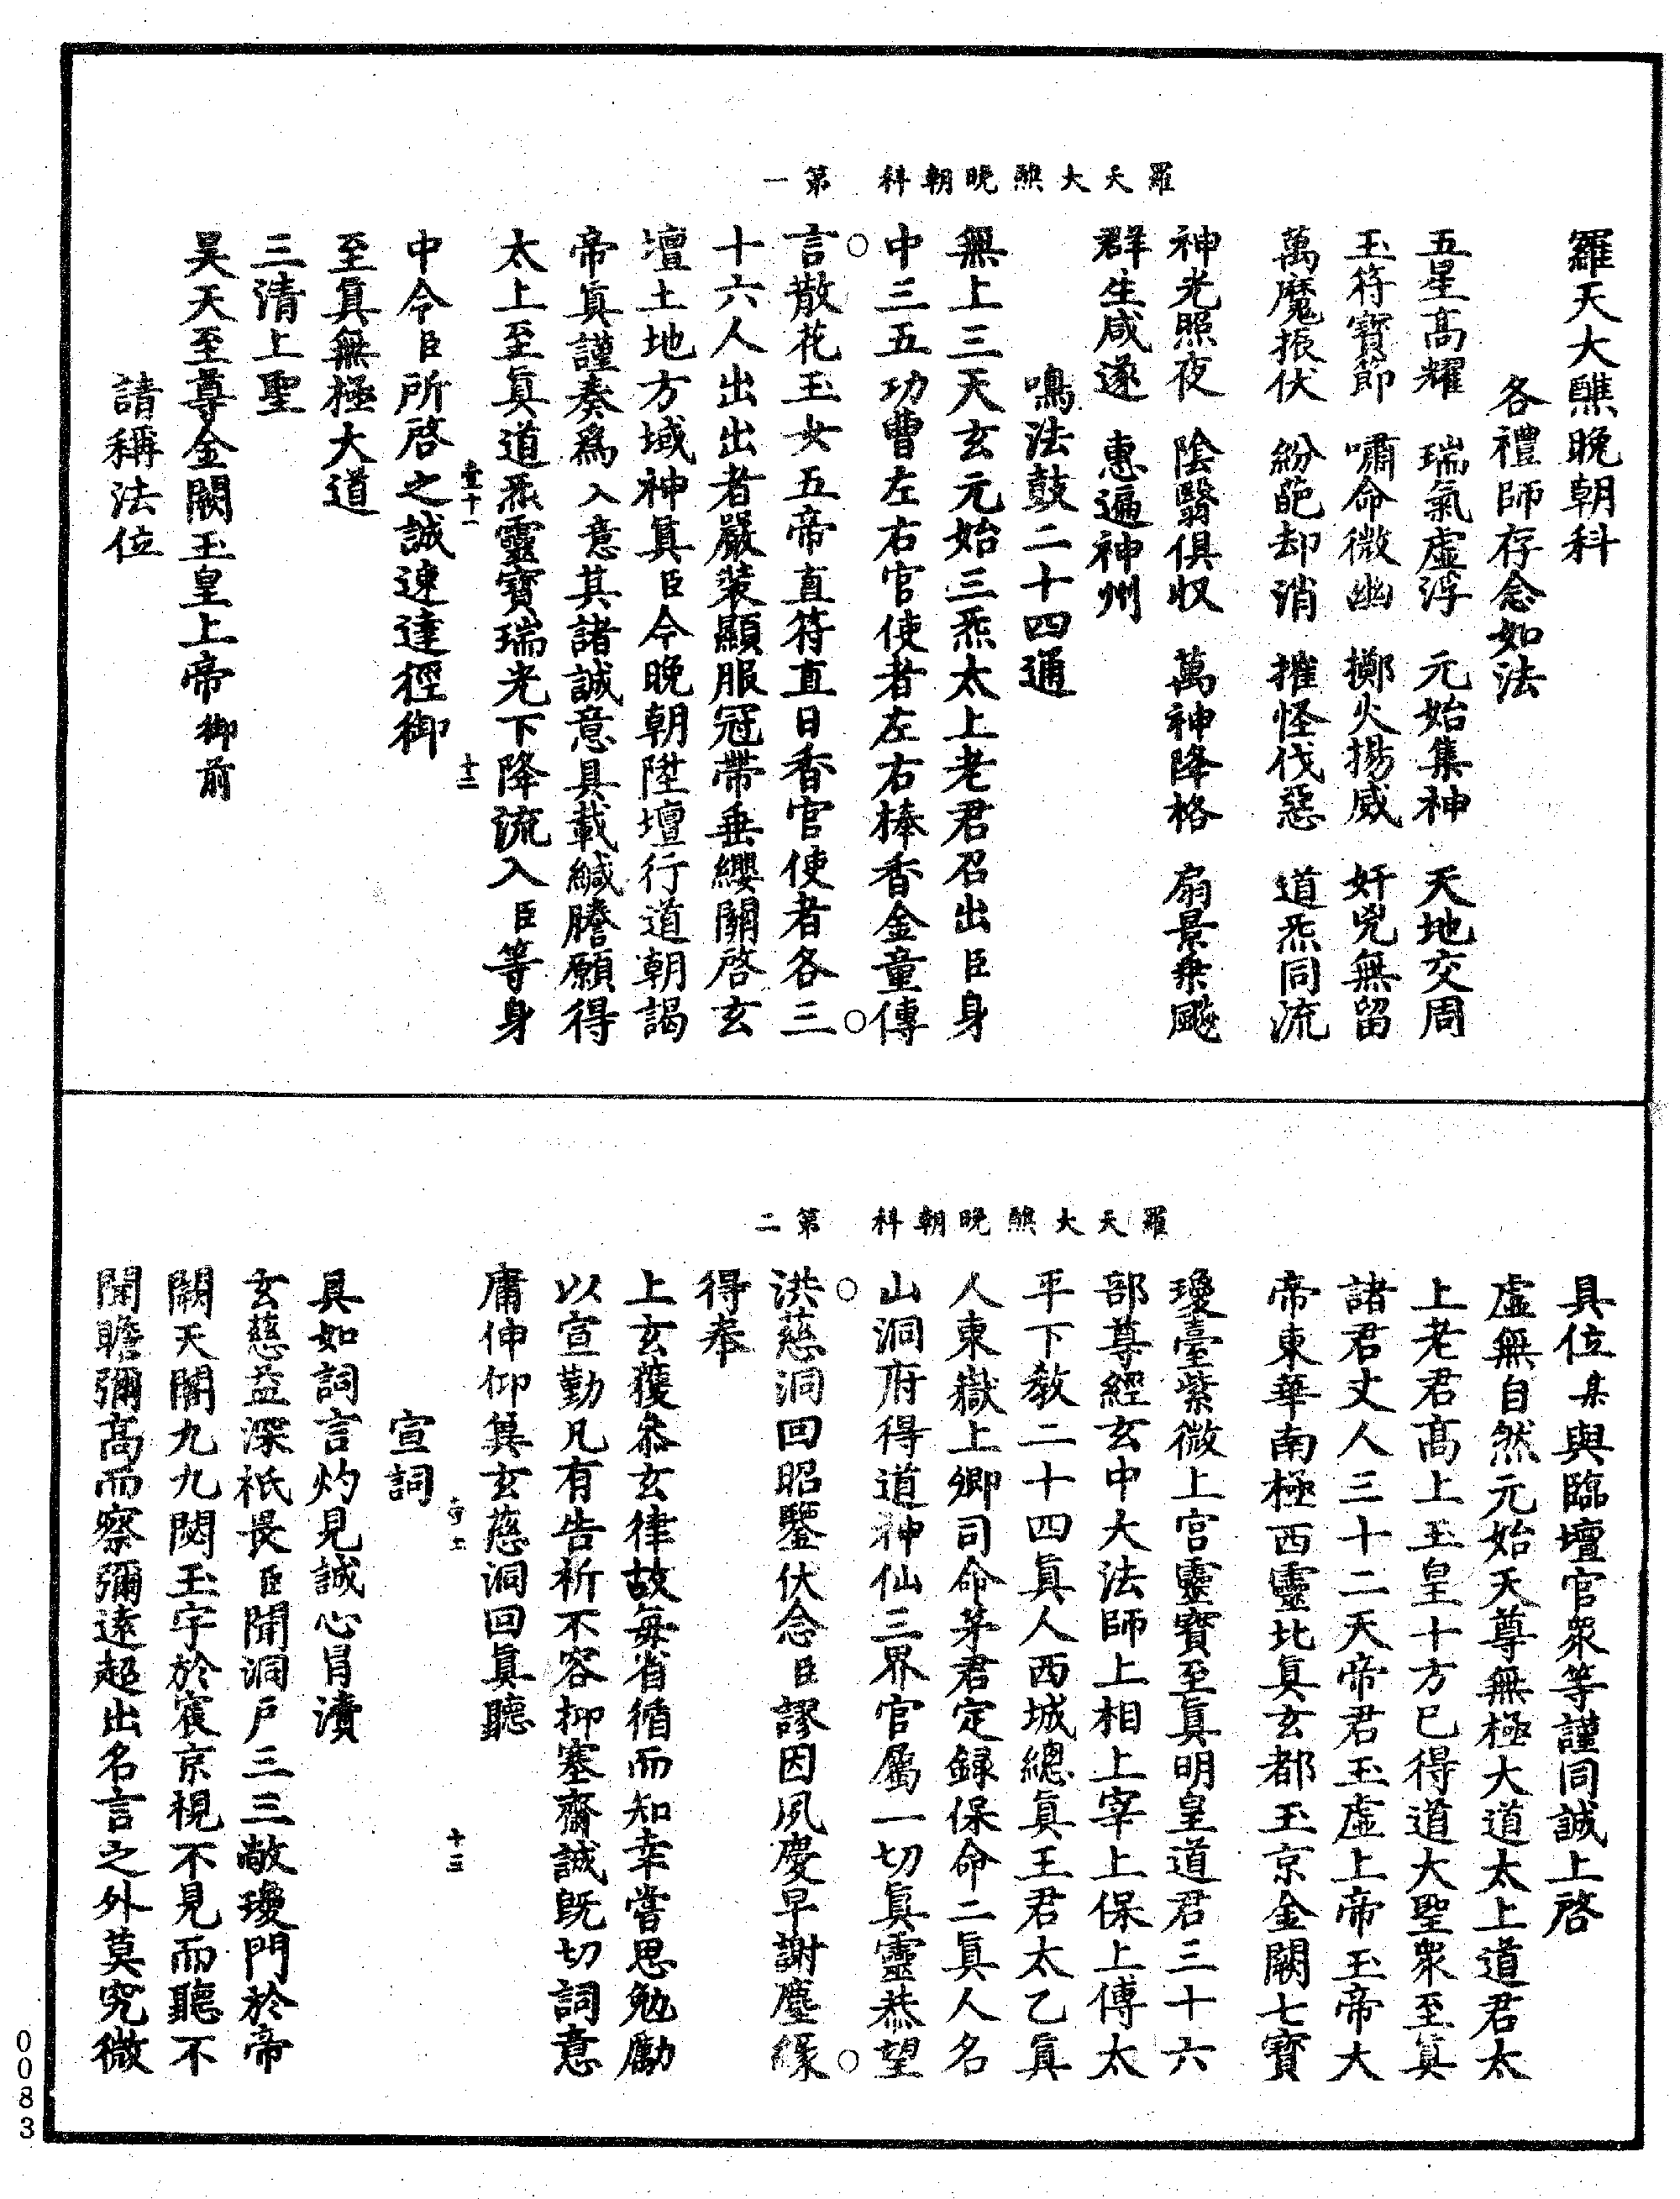 羅天大醮晚朝科　第一
羅天大醮晚朝科
各禮師存念如法
五星高耀　瑞氣虛浮　元始集神　天地交周
玉符寶節　嘯命微幽　擲火揚威　奸兇無留
萬魔振伏　紛葩却消　摧怪伐惡　道炁同流
神光照夜　陰翳俱収　萬神降格　扇景乗飈
群生咸遂　惠遍神州
鳴法鼓二十四通
無上三天玄元始三炁太上老君召出臣身
中三五功曹左右官使者左右捧香金童傳
言散花玉女五帝直符直日香官使者各三
十六人出出者嚴裝顯服冠帶垂纓關啓玄
壇土地方域神眞臣今晚朝陞壇行道朝謁
帝眞謹奏爲入意其諸誠意具載緘謄願得
太上至眞道炁靈寶瑞光下降流入臣等身
壹十一
十二
中令臣所啓之誠速達徑御
至眞無極大道
三清上聖
昊天至尊金闕玉皇上帝御前
請稱法位
羅天大醮晚朝科　第二
具位某與臨壇官衆等謹同誠上啓
虛無自然元始天尊無極大道太上道君太
上老君高上玉皇十方已得道大聖衆至眞
諸君丈人三十二天帝君玉虛上帝玉帝大
帝東華南極西靈北眞玄都玉京金闕七寶
瓊臺紫微上宫靈寶至眞明皇道君三十六
部尊經玄中大法師上相上宰上保上傅太
平下教二十四眞人西城總眞王君太乙眞
人東嶽上卿司命茅君定録保命二眞人名
山洞府得道神仙三界官屬一切眞靈恭望
洪慈洞回昭鑒伏念臣謬因夙慶早謝塵緣
得奉
上玄獲叅玄律故每省循而知幸嘗思勉勵
以宣勤凡有告祈不容抑塞齋誠既切詞意
庸伸仰兾玄慈洞回眞聽
宣詞
十三
具如詞言灼見誠心冐瀆
玄慈益深祇畏臣聞洞戶三三敞瓊門於帝
闕天關九九閟玉宇於宸京視不見而聽不
聞瞻彌高而察彌遠超出名言之外莫究微
0083